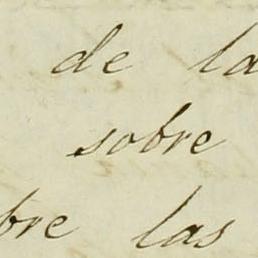 de la
sobre
bre las